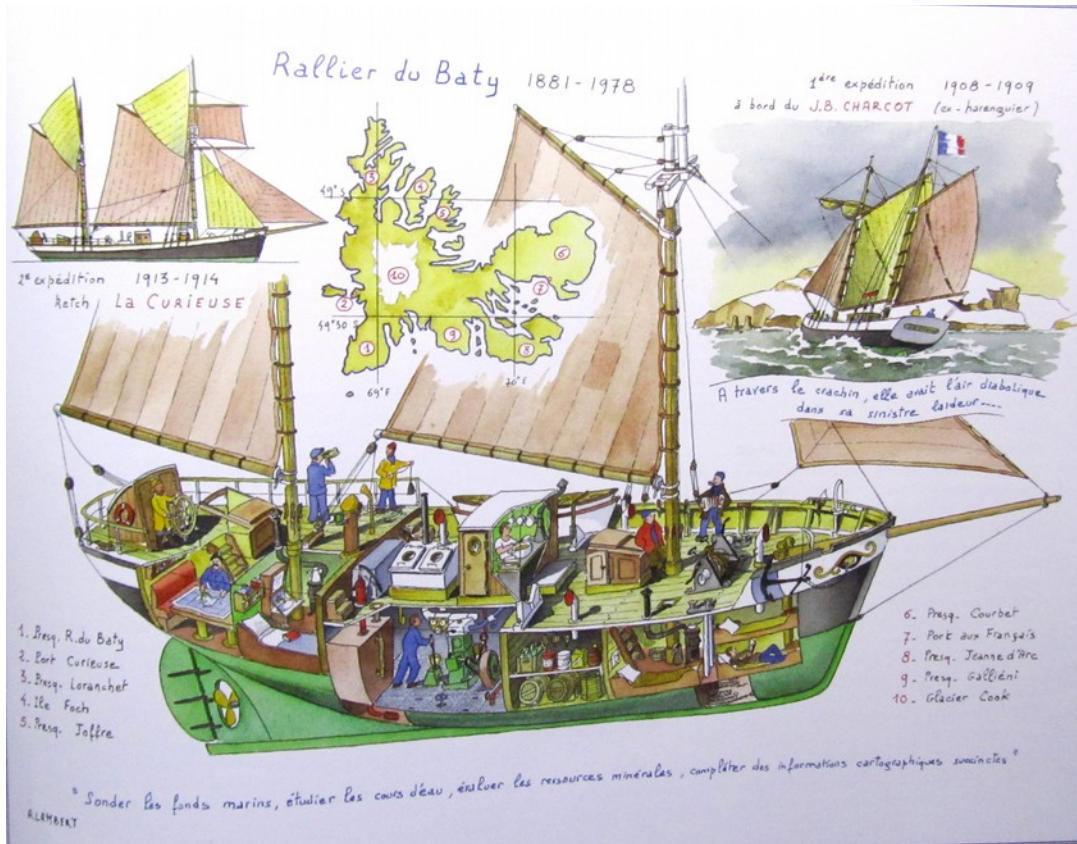 Rallier du Baty 1881-1978
1ère expédition 1908-1909
à bord du J.B. CHARCOT (ex-harenguier)
2e expédition 1913-1914
ketch LA CURIEUSE
49°S
49°30 S
69°E
70°E
3
4
5
6
10
7
2
1
9
8
A travers le crachin, elle avait l'air diabolique
dans sa sinistre laideur....
1. Presq. R. du Baty
2. Port Curieuse
3. Presq. Loranchet
4. Ile Foch
5. Presq. Joffre
6. Presq. Courbet
7. Port aux Français
8. Presq. Jeanne d'Arc
9. Presq. Galliéni
10. Glacier Cook
"Sonder les fonds marins, étudier les cours d'eau, évaluer les ressources minérales, compléter des informations cartographiques succinctes"
R.LAMBERT